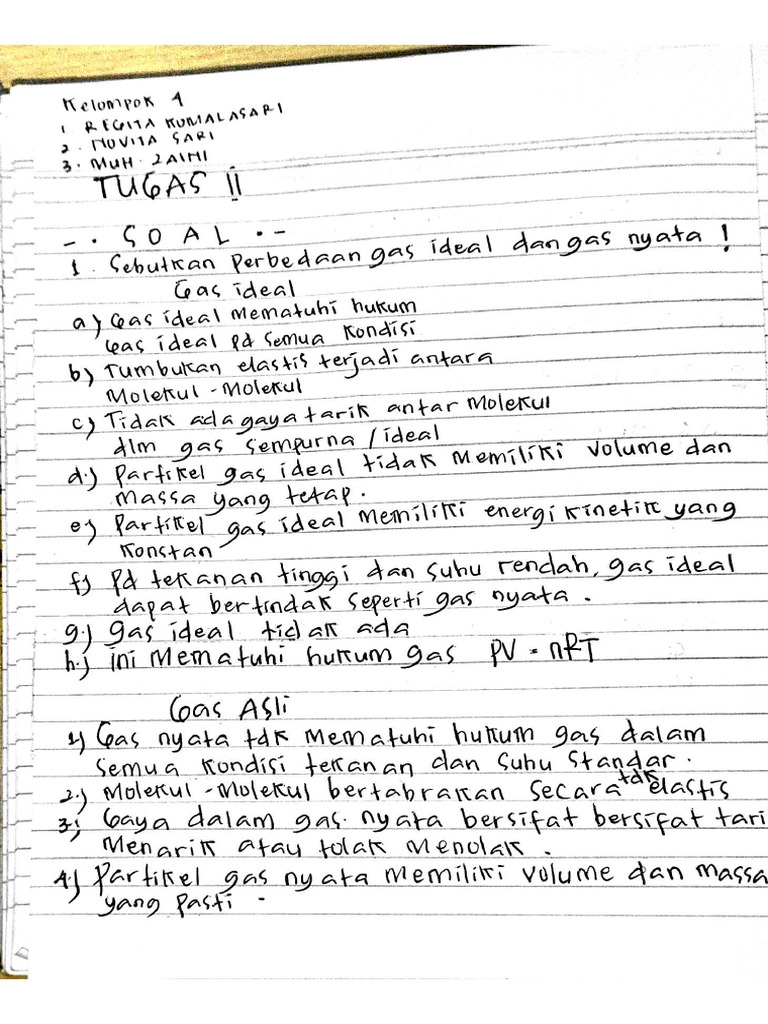 Kelompok 4
1. REGITA KUMALASARI
2. NOVITA SARI
3. MUH. ZAINI
TUGAS II
-. SOAL .-
1. Sebutkan Perbedaan gas ideal dan gas nyata !
Gas ideal
a) Gas ideal Mematuhi hukum
Gas ideal pd semua kondisi
b) Tumbukan elastis terjadi antara
Molekul-Molekul
c) Tidak ada gaya tarik antar Molekul
dlm gas sempurna/ideal
d.) Partikel gas ideal tidak Memiliki volume dan
massa yang tetap.
e) Partikel gas ideal Memiliki energi kinetik yang
konstan
f) Pd tekanan tinggi dan suhu rendah, gas ideal
dapat bertindak seperti gas nyata.
g.) gas ideal tidak ada
h.) ini Mematuhi hukum gas PV = nRT
Gas Asli
1) Gas nyata tdk Mematuhi hukum gas dalam
semua kondisi tekanan dan suhu standar.
2.) Molekul-Molekul bertabrakan secara tdk elastis
3) Gaya dalam gas nyata bersifat bersifat tari
Menarik atau tolak Menolak.
4) Partikel gas nyata memiliki volume dan massa
yang pasti.